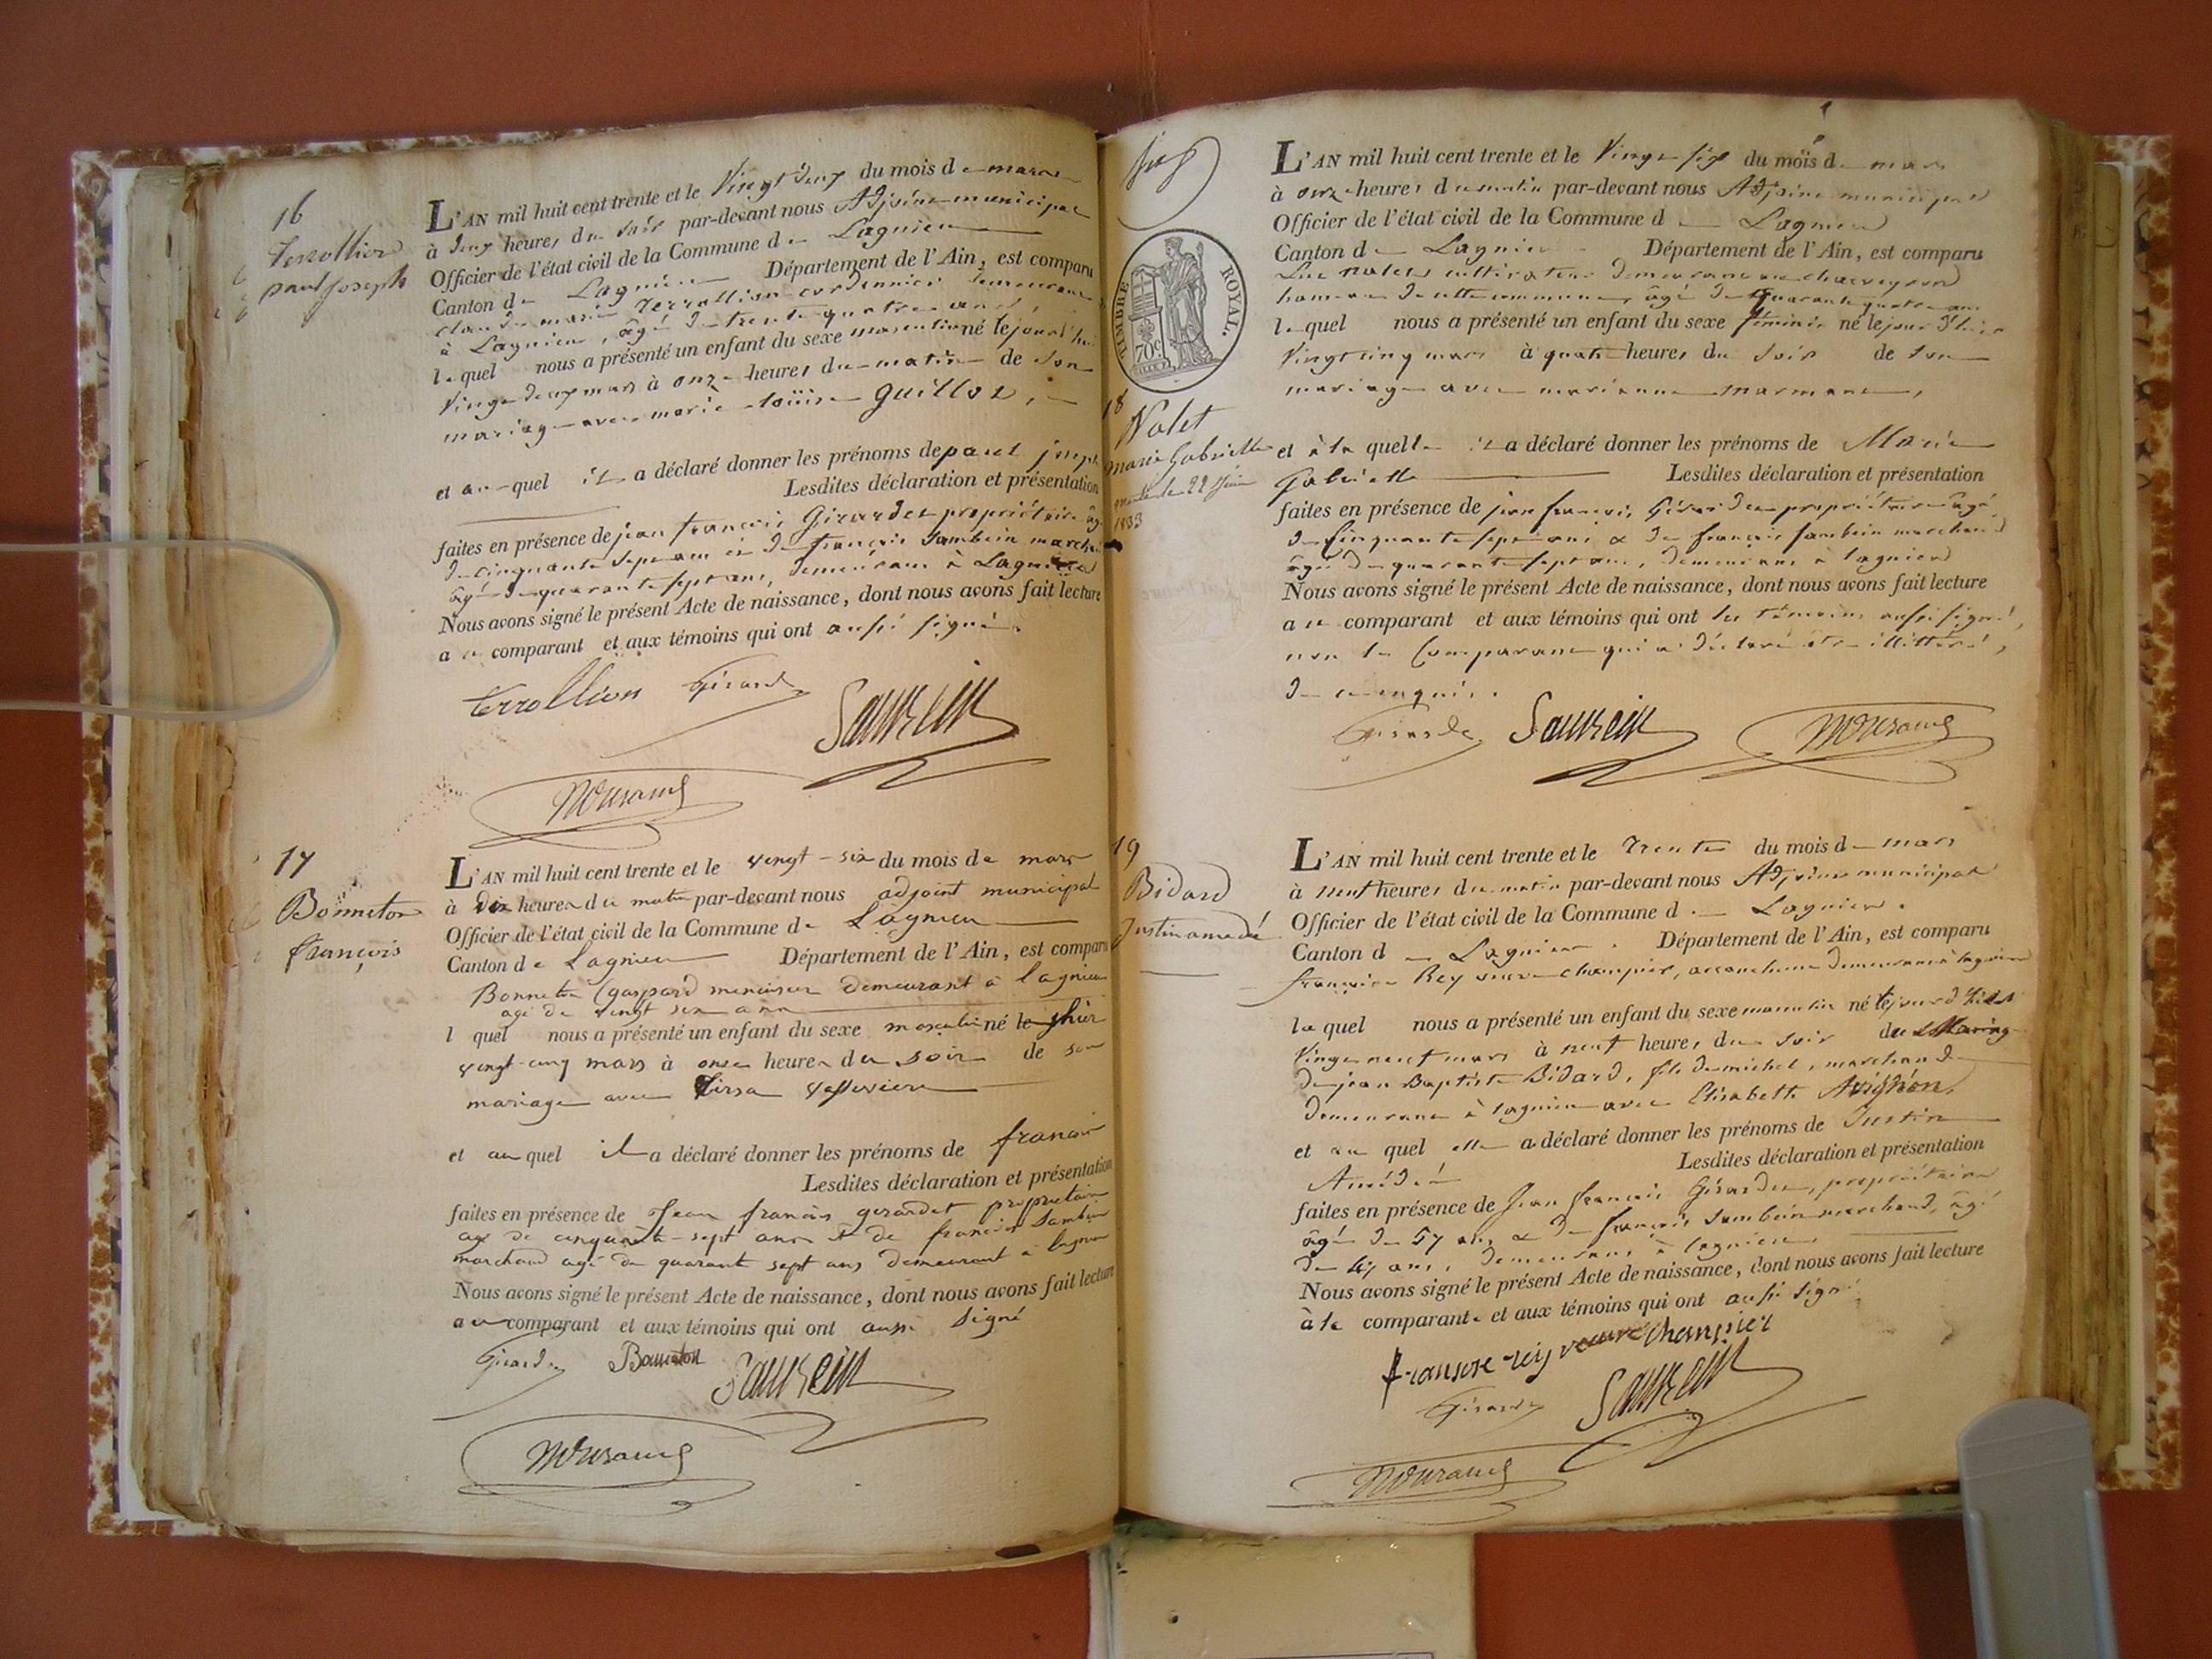 16
Terrollion
paul Joseph
L'AN mil huit cent trente et le Vingt deux du mois de mars
à deux heures du soir par-devant nous Adjoint municipal
Officier de l'état civil de la Commune de Lagnieu
Canton de Lagnieu Département de l'Ain, est comparu
claude marie Terrollion cordonnier demeurant
à Lagnieu, âgé de trente quatre ans
lequel nous a présenté un enfant du sexe masculin né le jourd'hui
Vingt deux mars à onze heures du matin de son
mariage avec marie louise Guillot,
et au-quel il a déclaré donner les prénoms de paul joseph
Lesdites déclaration et présentation
faites en présence de jean françois Girardet propriétaire âgé
de cinquante sept ans et de françois Sambein marchand
âgé de quarante sept ans, demeurant à Lagnieu
Nous avons signé le présent Acte de naissance, dont nous avons fait lecture
au comparant et aux témoins qui ont aussi signé.
terrollion Girardet
17
Bonneton
françois
L'AN mil huit cent trente et le vingt-six du mois de mars
à dix heures du matin par-devant nous adjoint municipal
Officier de l'état civil de la Commune de Lagnieu
Canton de Lagnieu Département de l'Ain, est comparu
Bonneton gaspard menuisier demeurant à lagnieu
agé de vingt six ans
lquel nous a présenté un enfant du sexe masculin né le hier
vingt-cinq mars à onze heures du soir de son
mariage avec
et au quel il a déclaré donner les prénoms de françois
Lesdites déclaration et présentation
faites en présence de Jean françois gerardet proprietaire
agé de cinquante-sept ans et de françois Sambein
marchand agé de quarante sept ans demeurant à lagnieu
Nous avons signé le présent Acte de naissance, dont nous avons fait lecture
au comparant et aux témoins qui ont aussi signé
Girardet Bonneton
TIMBRE ROYAL.
70c
18
Nalet
marie Gabrielle
1833
L'AN mil huit cent trente et le Vingt six du mois de mars
à onze heures du matin par-devant nous Adjoint municipal
Officier de l'état civil de la Commune d Lagnieu
Canton d Lagnieu Département de l'Ain, est comparu
Luc nalet cultivateur demeurant au charveyron
hameau de cette commune, âgé de quarante quatre ans
lequel nous a présenté un enfant du sexe féminin né le jour d'hier
Vingt cinq mars à quatre heures du soir de son
mariage avec marianne marmont,
et à la quelle il a déclaré donner les prénoms de Marie
Gabrielle Lesdites déclaration et présentation
faites en présence de jean françois Girardet propriétaire âgé
de Cinquante sept ans & de françois Sambein marchand
âgé de quarante sept ans, demeurant à lagnieu
Nous avons signé le présent Acte de naissance, dont nous avons fait lecture
au comparant et aux témoins qui ont les témoins aussi signé,
non le Comparant qui a déclaré être illittéré,
de ce enquis.
Girardet
19
Bidard
Justin amedé
L'AN mil huit cent trente et le Trente du mois de mars
à neuf heures du matin par-devant nous Adjoint municipal
Officier de l'état civil de la Commune d Lagnieu.
Canton d Lagnieu. Département de l'Ain, est comparu
françoise Rey veuve champier, accoucheuse demeurant à lagnieu
laquel nous a présenté un enfant du sexe masculin né le jour d'hier
Vingt neuf mars à neuf heures du soir du Mariage
de jean Baptiste Bidard, fils de michel, marchand
demeurant à lagnieu avec Elisabeth Avignon,
et au quel elle a déclaré donner les prénoms de Justin
Amédé Lesdites déclaration et présentation
faites en présence de Jean françois Girardet, propriétaire
âgé de 57 ans & de françois Sambein marchand, âgé
de 47 ans, demeurant à lagnieu.
Nous avons signé le présent Acte de naissance, dont nous avons fait lecture
à la comparante et aux témoins qui ont aussi signé
fransoise reiy veuve champier
Girardet